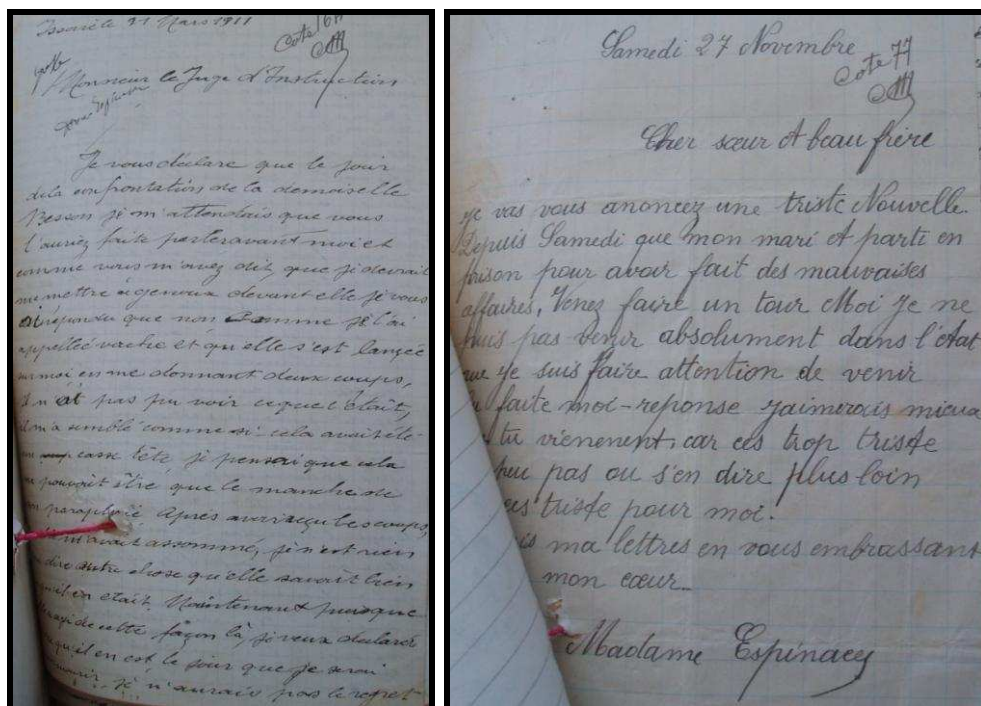 31 Mars 1911
Cote 16
Monsieur le Juge d'Instruction
Je vous déclare que le jour
de la confrontation de la demoiselle
Besson je m'attendais que vous
l'auriez faite parler avant moi et
comme vous m'avez dit, que je devrai
me mettre à genoux devant elle je vous
ai répondu que non comme je l'ai
appellée vache et qu'elle s'est lançée
sur moi en me donnant deux coups,
pas pu voir ce que c'était,
m'a semblé comme si cela avait été
casse tête je pensai que cela
pouvait être que le manche de
Après avoir reçu les coups,
m'avait assommé, je n'est rien
dire autre chose qu'elle savait bien
en était. Maintenant puisque
de cette façon là, je veux déclarer
qu'il en est le jour que je serai
mourir, je n'aurais pas le regret
Samedi 27 Novembre
Cote 77
Cher sœur et beau frère
Je vas vous anoncez une triste Nouvelle.
Depuis Samedi que mon mari et parti en
prison pour avoir fait des mauvaises
affaires, Venez faire un tour Moi Je ne
puis pas venir absolument dans l'état
que Je suis faire attention de venir
faite moi-reponse Jaimerais mieux
tu vienenent, car ces trop triste
peu pas ou s'en dire plus loin
ces triste pour moi.
ma lettres en vous embrassant
mon cœur
Madame Espinacy